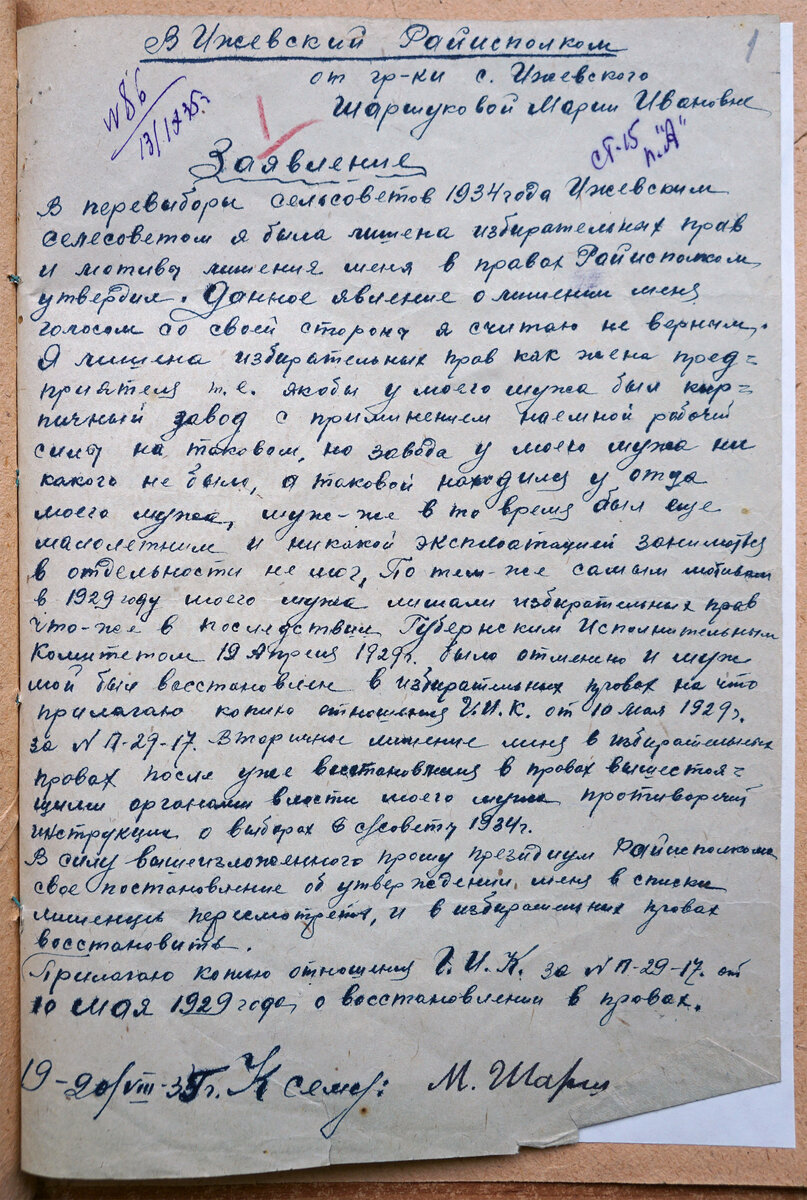 В Ижевский Райисполком
1
от гр-ки с. Ижевского
Шаршуковой Марии Ивановне
N 86
13/IX 35г.
ст-15
п. "А"
Заявление
В перевыборы сельсоветов 1934 года Ижевским
селесоветом я была лишена избирательных прав
и мотивы лишения меня в правах Райисполком
утвердил. Данное явление о лишении меня
голосом со своей стороны я считаю не верным.
Я лишена избирательных прав как жена пред=
приятеля т.е. якобы у моего мужа был кир-
пичный завод с приминением наемной рабочий
силы на таковом, но завода у моего мужа ни
какого не было, а таковой находился у отца
моего мужа, муж-же в то время был еще
малолетним и никакой эксплоатацией заниматься
в отдельности не мог, По тем-же самым мотивам
в 1929 году моего мужа лишали избирательных прав
что-же в последствии Губернским Исполнительным
комитетом 19 Апреля 1929г. было отменено и муж
мой был восстановлен в избирательных правах на что
прилагаю копию отношения Г.И.К. от 10 мая 1929г.
за N П-29-17. Вторичное лишение меня в избирательных
правах после уже восстановления в правах вышестоя=
щими органами власти моего мужа противоречит
инструкции о выборах в советы 1934г.
В силу вышеизложенного прошу президиум Райисполкома
свое постановление об утверждении меня в списки
лишенцев пересмотреть, и в избирательных правах
восстановить.
Прилагаю копию отношения Г.И.К. за N П-29-17. от
10 мая 1929 года о восстановлении в правах.
19-20/VIII-35г. К сему: М. Шарш